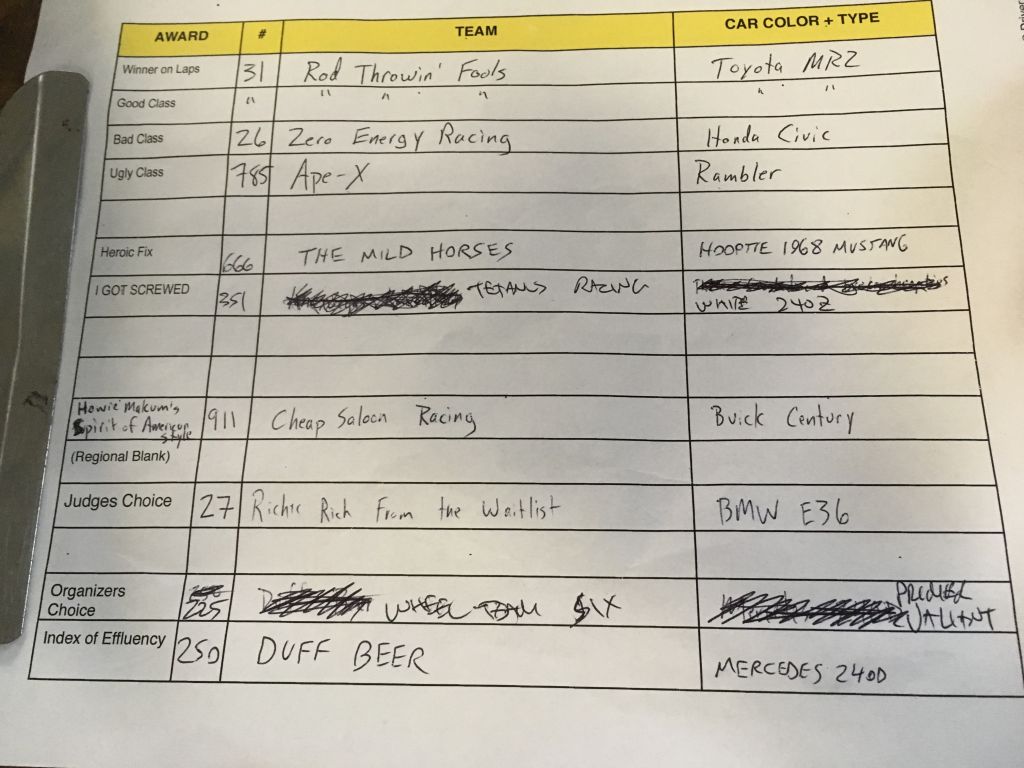 AWARD # TEAM CAR COLOR + TYPE
Winner on Laps 31 Rod Throwin' Fools Toyota MR2
Good Class " " " " " "
Bad Class 26 Zero Energy Racing Honda Civic
Ugly Class 785 Ape-X Rambler
Heroic Fix 666 THE MILD HORSES HOOPTIE 1968 MUSTANG
I GOT SCREWED 351 TETANUS RACING
WHITE 240Z
Howie Makum's
Spirit of American
Style 911 Cheap Saloon Racing Buick Century
(Regional Blank)
Judges Choice 27 Richie Rich From the Waitlist BMW E36
Organizers
Choice 225 WHEEL TEAM SIX
VALIANT
Index of Effluency 250 DUFF BEER MERCEDES 240D